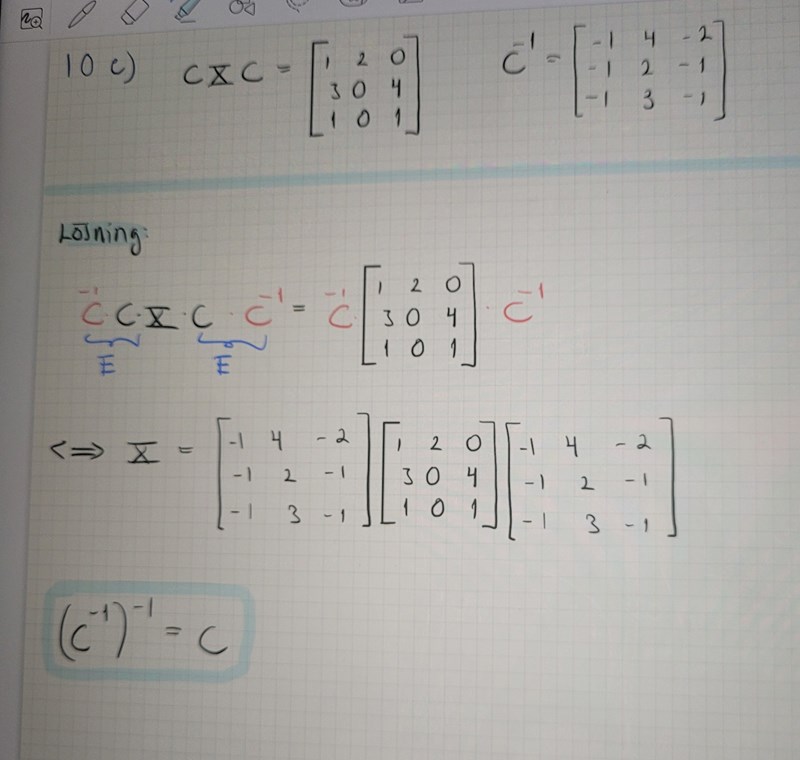 10 c) C X C = [1 2 0; 3 0 4; 1 0 1] C⁻¹ = [-1 4 -2; -1 2 -1; -1 3 -1]
Lösning:
C⁻¹·C·X·C·C⁻¹ = C⁻¹·[1 2 0; 3 0 4; 1 0 1]·C⁻¹
E E
<=> X = [-1 4 -2; -1 2 -1; -1 3 -1] [1 2 0; 3 0 4; 1 0 1] [-1 4 -2; -1 2 -1; -1 3 -1]
(C⁻¹)⁻¹ = C